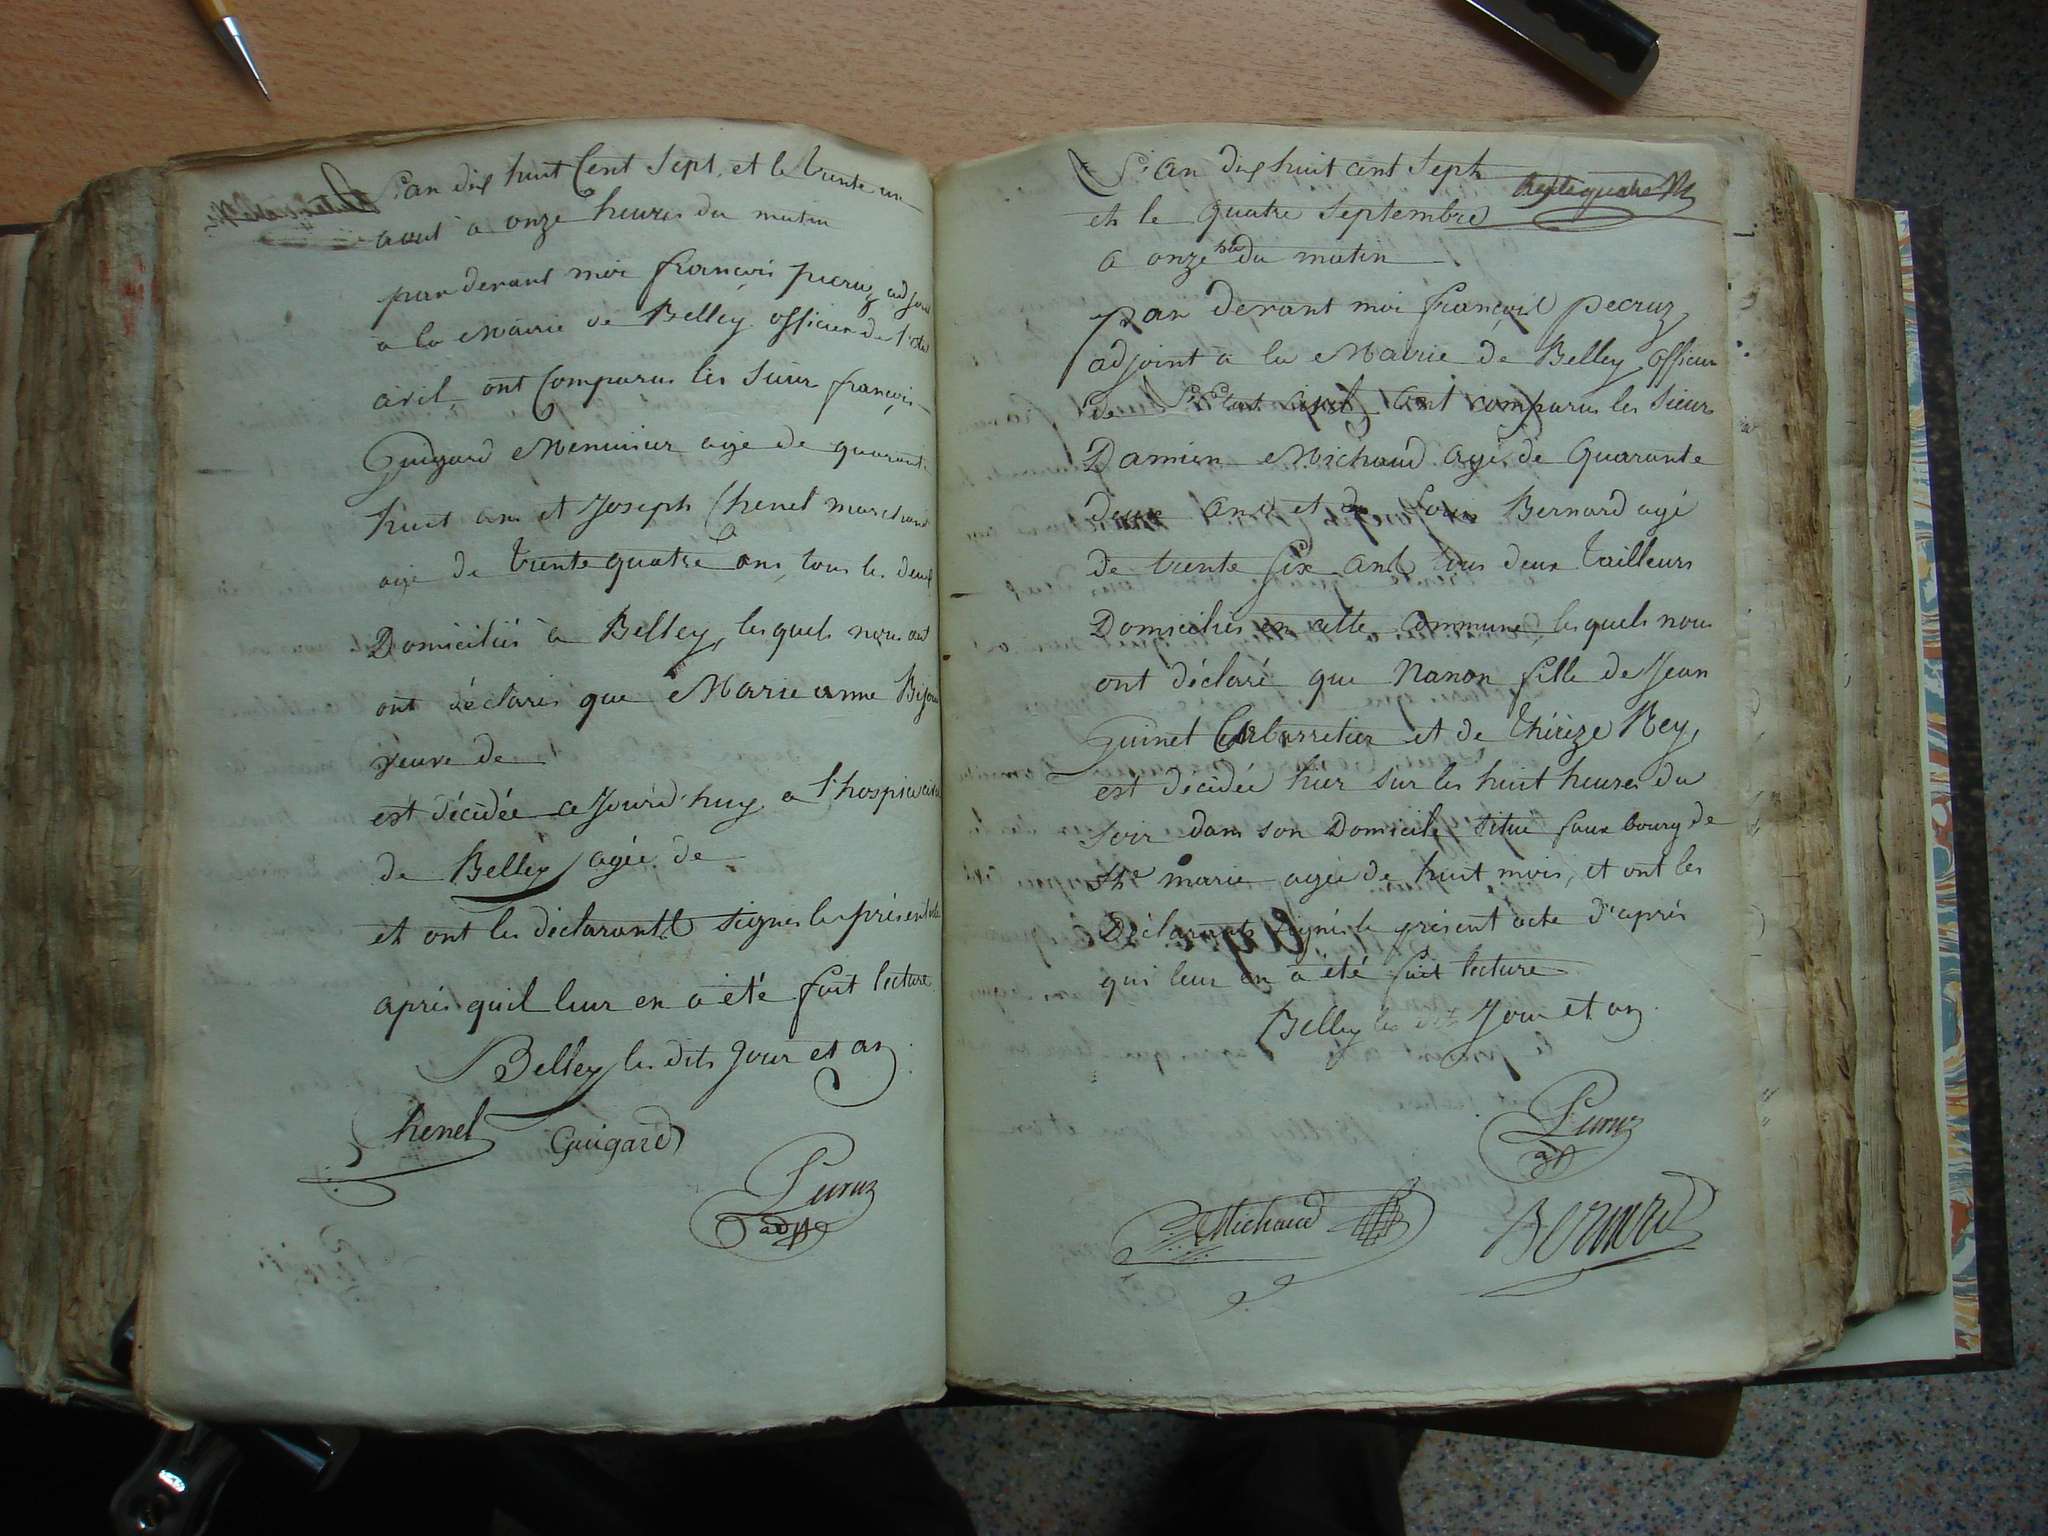 L'an dix huit Cent Sept, et le trente un
aout à onze heures du matin
par devant moi françois pecruz adjoint
a la Mairie de Belley officier de l'etat
civil ont Comparus les Sieur françois
Guigard Menuisier agé de quarante
huit ans et Joseph Chenel marchand
agé de trente quatre ans, tous les deux
Domiciliés a Belley, lesquels nous ont
ont déclarés que Marie anne
veuve de
est décédée ce Jourd'huy a l'hospice civil
de Belley agée de
et ont les déclarants signés le présent acte
après qu'il leur en a été fait lecture
Belley les dits Jour et an
Chenel Guigard
Pecruz
adj
L'an dix huit cent Sept
et le quatre Septembre
a onze hes du matin
par devant moi françois pecruz
adjoint a la Mairie de Belley officier
de L'Etat civil ont comparus les Sieurs
Damien Michaud agé de Quarante
deux ans et Louis Bernard agé
de trente Six ans tous deux tailleurs
Domiciliés en cette commune, lesquels nous
ont déclaré que Nanon fille de Jean
Guinet Cabarretier et de thérèze Rey,
est décédée hier sur les huit heures du
soir dans son Domicile situé faux bourg de
Ste marie agée de huit mois, et ont les
Déclarants signés le présent acte d'après
qui leur en a été fait lecture
Belley les dits Jour et an
Pecruz
adj
Michaud Bernard